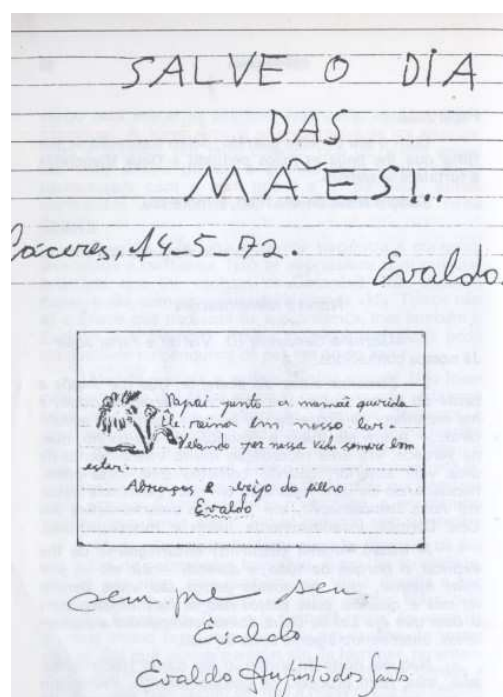 SALVE O DIA
DAS
MÃES!..
Cáceres, 14-5-72.
Evaldo.
Papai junto a mamãe querida
Ele reina em nosso lar.
Velando por nossa vida sempre bem
estar.
Abraços e beijo do filho
Evaldo
sempre seu.
Evaldo
Evaldo Augusto dos Santos